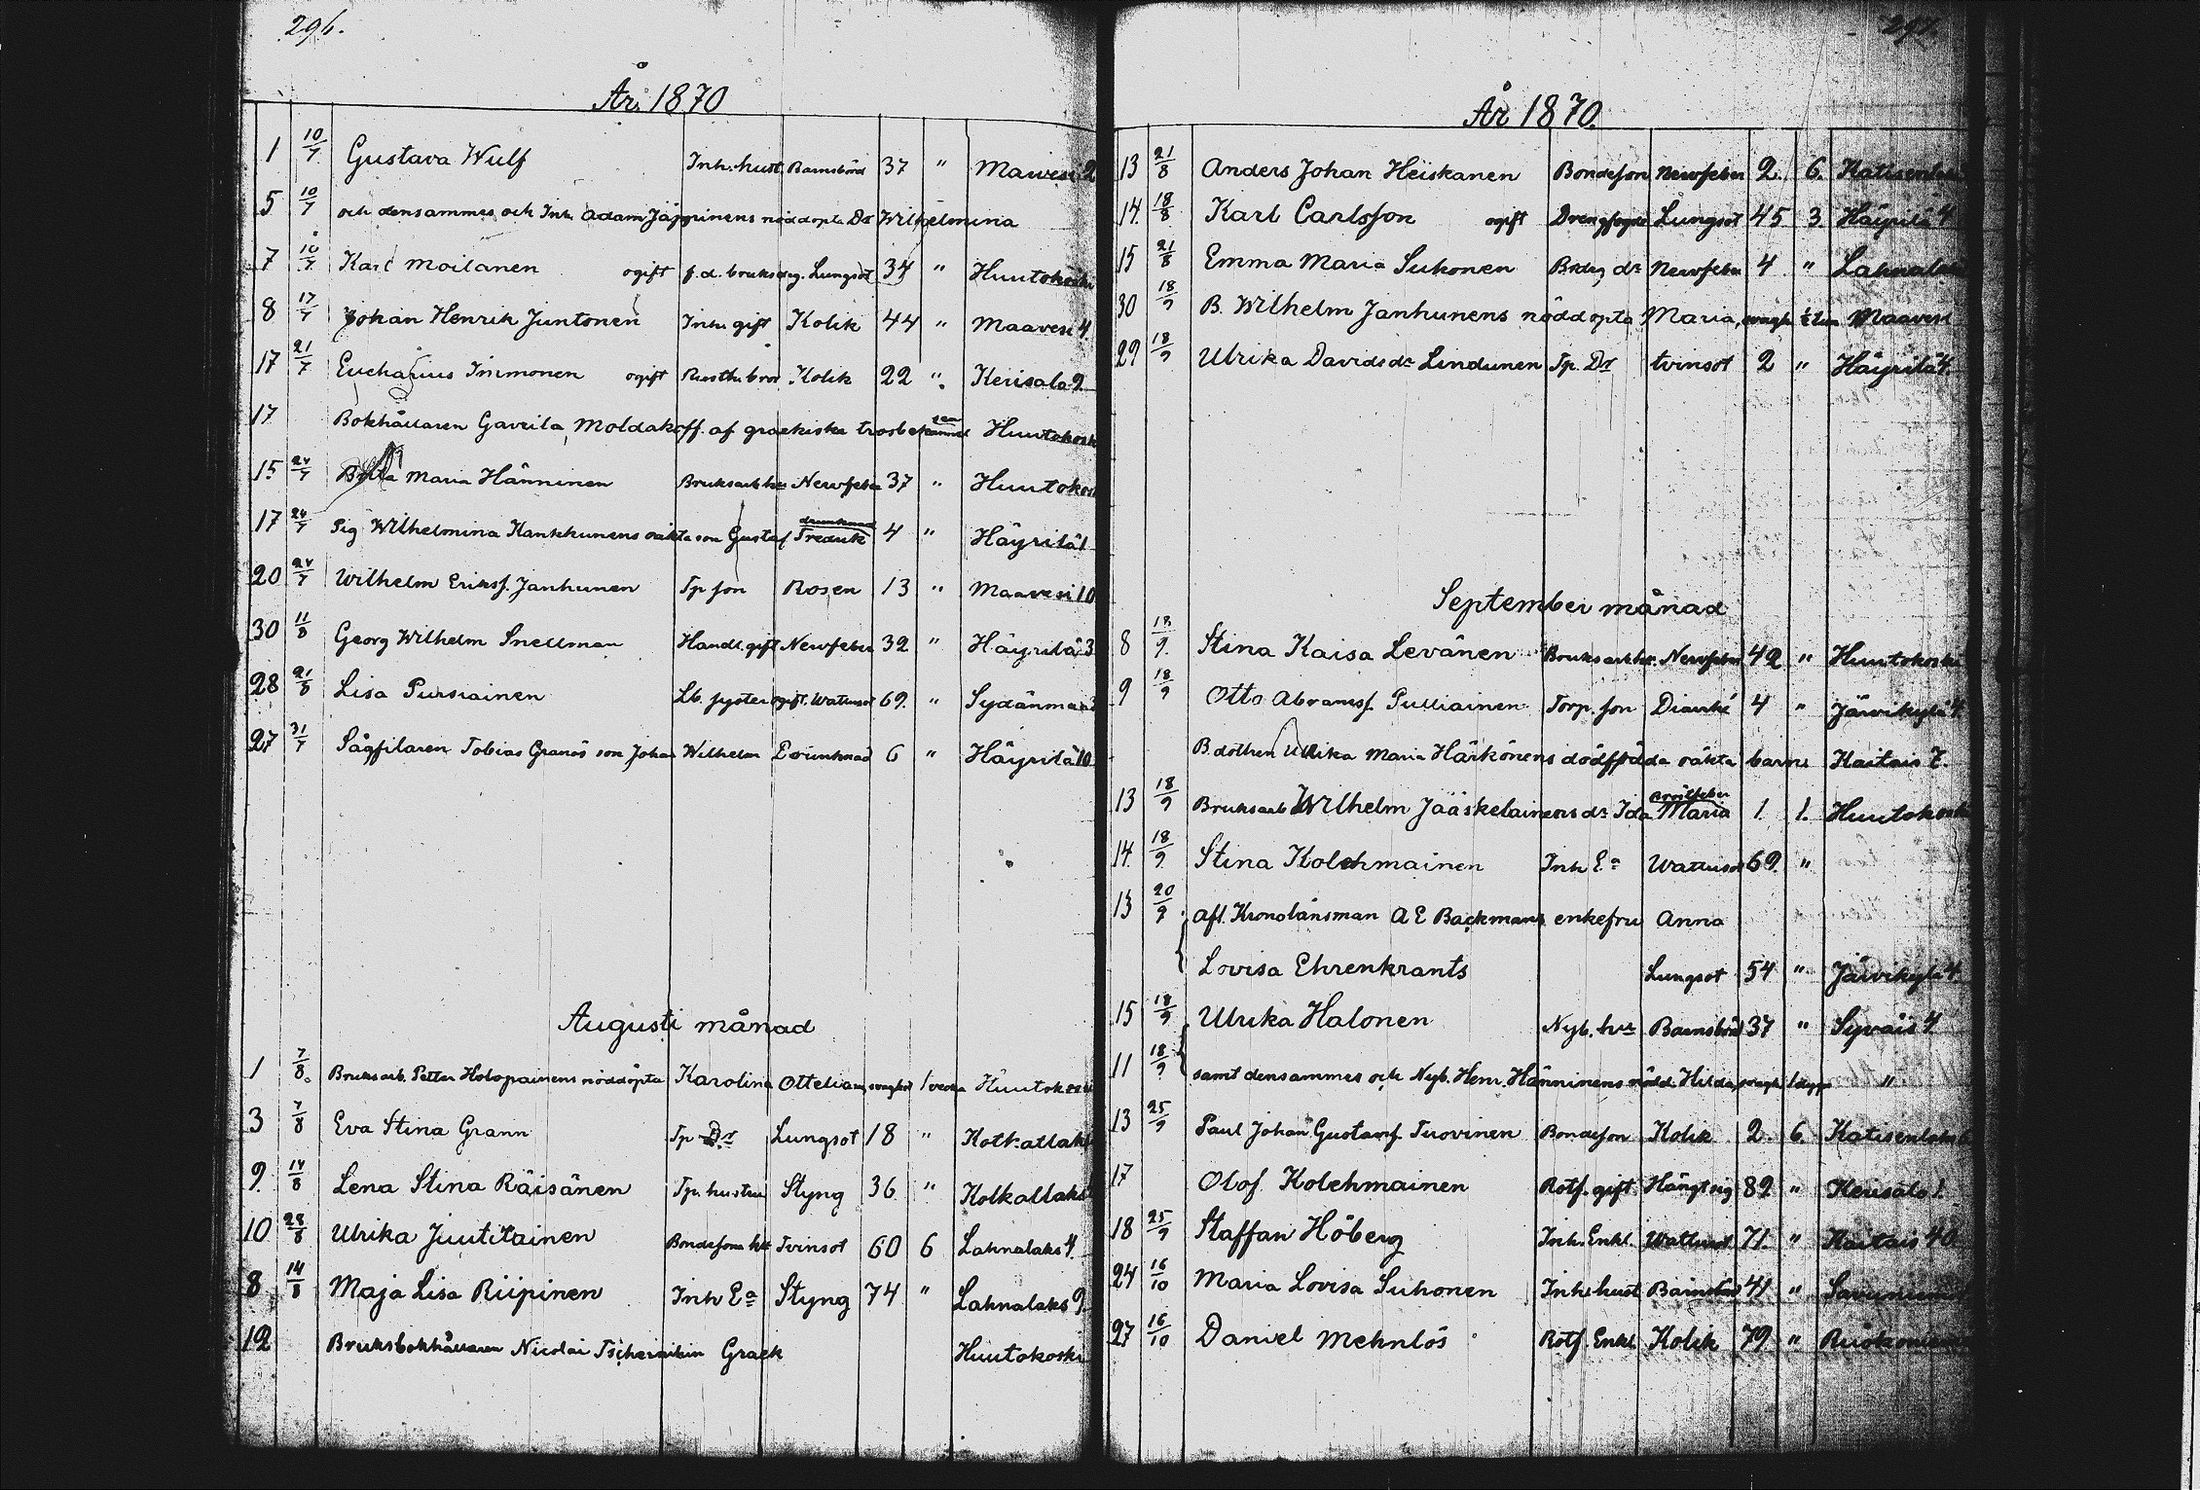 296.
År 1870
1 10/7 Gustava Wulf Inh. hust. Barnsbörd 37 " Maavesi 2
5 10/7 och densammes och Inh. Adam Jäppinens nöddöpta Dr Wilhelmina
7 10/7 Karl Moilanen ogift f.d. bruksdrg. Lungsot 34 " Huutokoski
8 17/7 Johan Henrik Juntonen Inh. gift Kolik 44 " Maavesi 4.
17 21/7 Eucharius Immonen ogift Rusth. bror Kolik 22 " Kerisalo 2
17 Bokhållaren Gavrila Moldakoff. af grekiska trosbekännel sen Huutokoski
15 24/7 Maria Hänninen Bruksarb. hu Nervfeber 37 " Huutokoski
17 24/7 Pig Wilhelmina Kankkunens oäkta son Gustaf Fredrik drunknad 4 " Häyrilä 1
20 24/7 Wilhelm Eriksf. Janhunen Tp son Rosen 13 " Maavesi 10
30 11/8 Georg Wilhelm Snellman Handl. gift Nervfeber 32 " Häyrilä 3
28 21/8 Lisa Pursiainen Lb. syster ogift. Wattusot 69. " Sydänmaa
27 31/7 Sågfilaren Tobias Granös son Johan Wilhelm Drunknad 6 " Häyrilä 10
Augusti månad
1 7/8. Bruksarb. Petter Holopainens nöddöpta Karolina Ottelia, svaghet 1 vecka Huutokoski
3 7/8 Eva Stina Grann Tp Dr Lungsot 18 " Kotkatlaks
9. 14/8 Lena Stina Räisänen Tp. hustru Styng 36 " Kolkatlaks
10 28/8 Ulrika Juutilainen Bondesons h. Tvinsot 60 6 Lahnalaks 4.
8 14/8 Maja Lisa Riipinen Inh Ea Styng 74 " Lahnalaks 9.
12 Bruksbokhållaren Nicolai Grek Huutokoski
297.
År 1870.
13 21/8 Anders Johan Heiskanen Bondeson Nervfeber 2. 6. Katisenlaks
14. 18/8 Karl Carlsson ogift Drengfogde Lungsot 45 3. Häyrilä 4
15 21/8 Emma Maria Suhonen Brdrg dr Nervfeber 4 " Lahnalaks
30 18/9 B. Wilhelm Janhunens nöddöpta Maria, svagh. Maavesi
29 18/9 Ulrika Davidsdr Lindunen Tp. Dr tvinsot 2 " Häyrilä 4.
September månad
8 18/9. Stina Kaisa Levänen Bruksarb. hu. Nervfeber 42 " Huutokoski
9 18/9 Otto Abramsf. Pulliainen Torp. son Diarrhé 4 " Järvikylä 4
B. dottren Ulrika Maria Härkönens dödfödda oäkta barn. Kaitais 7.
13 18/9 Bruksarb Wilhelm Jääskelainens dr Ida Maria nervfeber 1. 1. Huutokoski
14. 18/9 Stina Kolehmainen Inh Ea Wattusot 69. "
13 20/9 Afl. Kronolänsman A E Backmans enkefru Anna
Lovisa Ehrenkrants Lungsot 54 " Järvikylä 4
15 18/9 Ulrika Halonen Nyb. hu Barnsbörd 37 " Syväis 4.
11 18/9 samt densammes och Nyb. Henr. Hänninens nödd. Hilda, svagh. 1 dygn "
13 25/9 Paul Johan Gustafsf. Tuovinen Bondeson Kolik 2. 6 Katisenlaks
17 Olof Kolehmainen Rotf. gift Hängt sig 89. " Kerisalo 1.
18 25/9 Staffan Höberg Inh. Enkl. Wattusot 71. " Kaitais 40
24 16/10 Maria Lovisa Suhonen Inh. hust Barnsbörd 41 " Savuniemi
27 16/10 Daniel Mehnlös Rotf. Enkl. Kolik 79. "